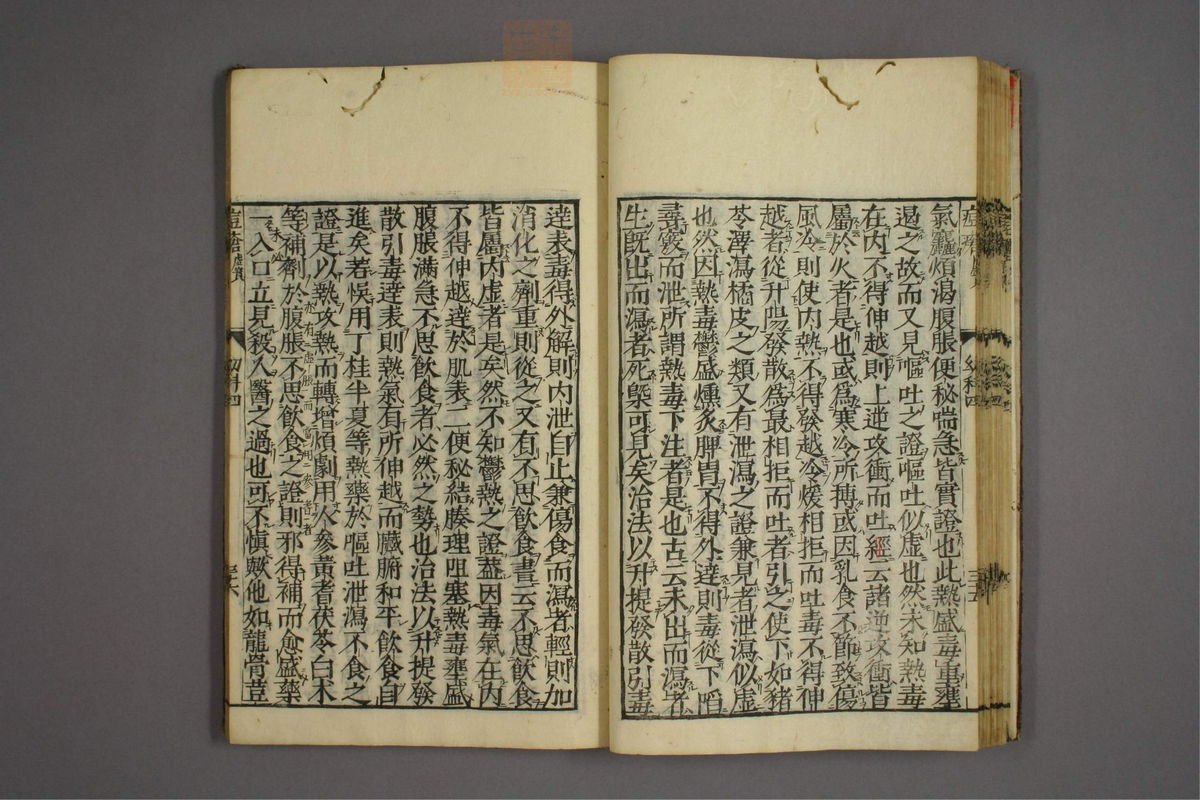 氣麤煩渴腹脹便秘喘急皆實證也此熱盛毒重壅
遏之故而又見嘔吐之證嘔吐似虛也然未知熱毒
在内不得伸越則上逆攻衝而吐經云諸逆攻衝皆
屬於火者是也或爲寒冷所搏或因乳食不節致傷
風冷則使内熱不得發越冷煖相拒而吐毒不得伸
越者從升陽發散爲最相拒而吐者引之使下如猪
苓澤瀉橘皮之類又有泄瀉之證兼見者泄瀉似虛
也然因熱毒鬱盛燻炙脾胃不得外達則毒從下陷
尋竅而泄所謂熱毒下注者是也古云未出而瀉者
生旣出而瀉者死槩可見矣治法以升提發散引毒
痘瘡虛實
幼科四
三十五
達表毒得外解則内泄自止兼傷食而瀉者輕則加
消化之劑重則從之又有不思飲食書云不思飲食
皆屬内虛者是矣然不知鬱熱之證葢因毒氣在内
不得伸越達於肌表二便秘結腠理阻塞熱毒壅盛
腹脹滿急不思飲食者必然之勢也治法以升提發
散引毒達表則熱氣有所伸越而臟腑和平飲食自
進矣若悞用丁桂半夏等熱藥於嘔吐泄瀉不食之
證是以熱攻熱而轉增煩劇用人參黃耆茯苓白术
等補劑於腹脹不思飲食之證則邪得補而愈盛藥
一入口立見殺人醫之過也可不愼歟他如龍骨荳
痘瘡虛實
幼科四
三十六